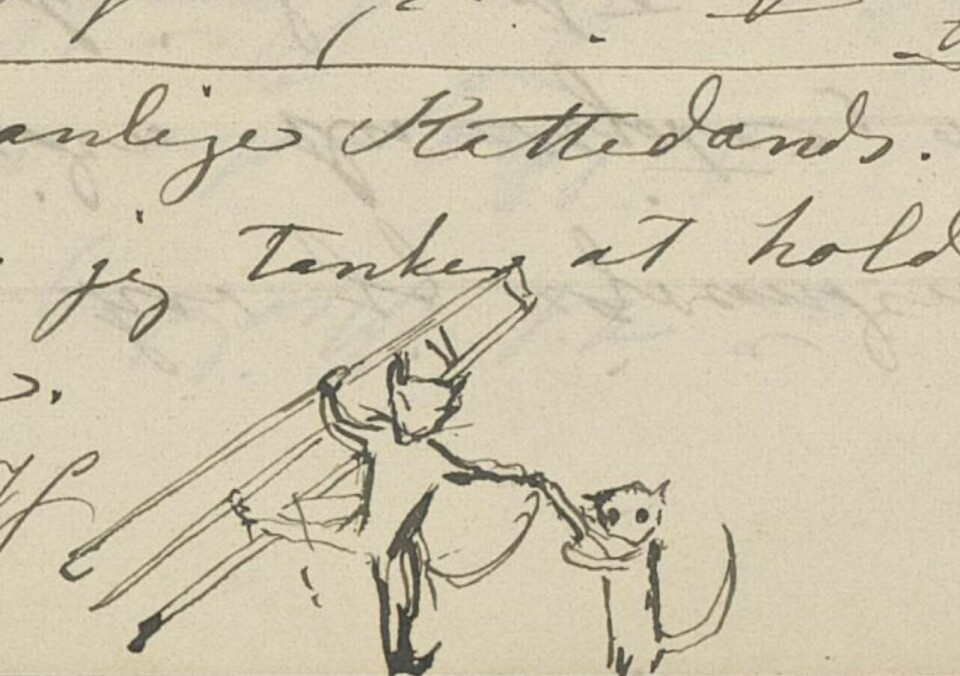 anlige Kattedands.
jeg tænker at hold